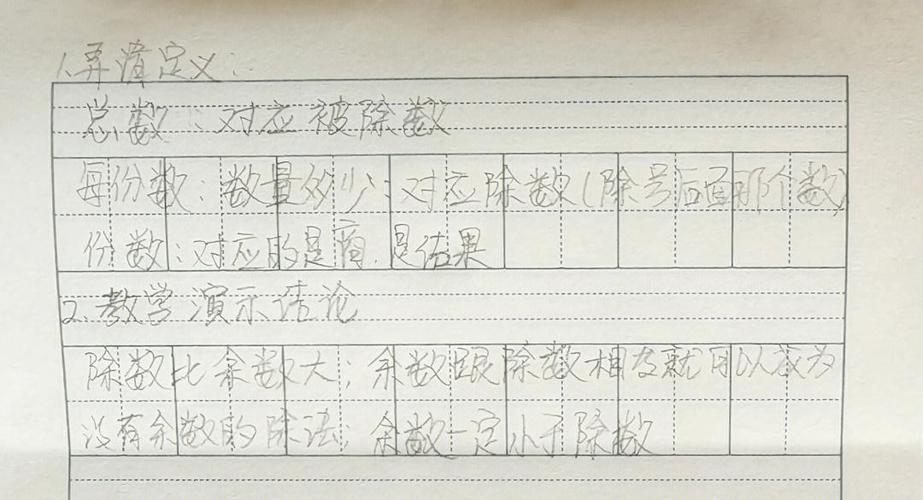 1.弄清定义:
总数:对应被除数
每份数:数量多少:对应除数(除号后面那个数)
份数:对应的是商.是结果
2.教学演示结论
除数比余数大,余数跟除数相等就可以改为
没有余数的除法;余数一定小于除数